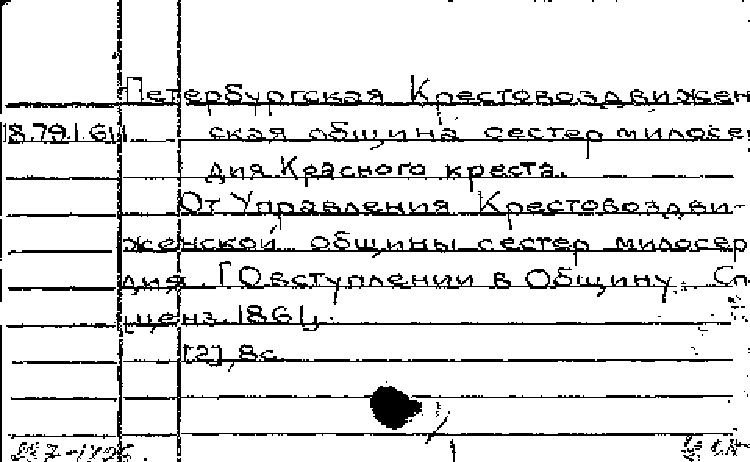 Петербургская Крестовоздвижен
18.79.1.61 ская община сестер милосер
дия Красного креста.
От Управления Крестовоздви-
женской общины сестер милосер
дия. [О вступлении в Общину. Сп
ценз. 1861].
[2], 8с.